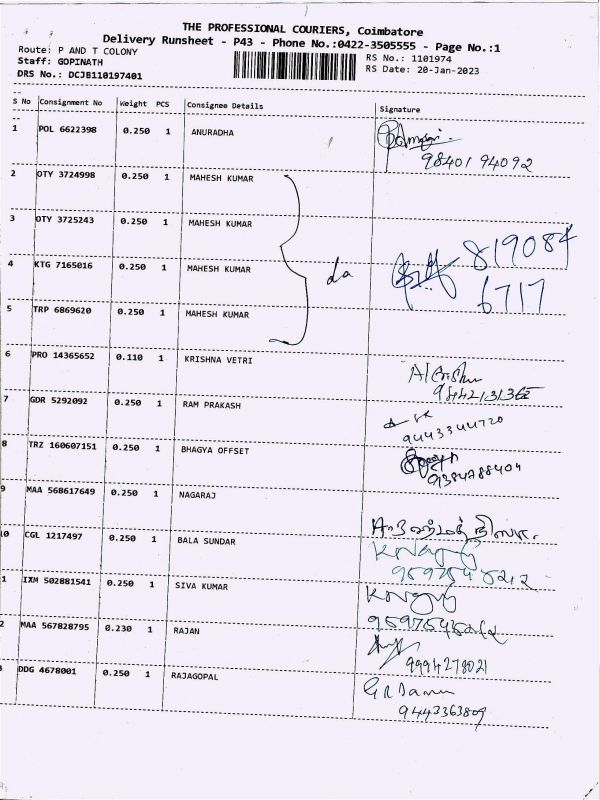 THE PROFESSIONAL COURIERS, Coimbatore
Delivery Runsheet - P43 - Phone No.:0422-3505555 - Page No.:1
Route: P AND T COLONY
Staff: GOPINATH
DRS No.: DCJB110197401
RS No.: 1101974
RS Date: 20-Jan-2023
S No Consignment No Weight PCS Consignee Details Signature
1 POL 6622398 0.250 1 ANURADHA
98401 94092
2 OTY 3724998 0.250 1 MAHESH KUMAR
3 OTY 3725243 0.250 1 MAHESH KUMAR
819084
4 KTG 7165016 0.250 1 MAHESH KUMAR
6717
5 TRP 6869620 0.250 1 MAHESH KUMAR
6 PRO 14365652 0.110 1 KRISHNA VETRI
7 GDR 5292092 0.250 1 RAM PRAKASH
9443344720
8 TRZ 160607151 0.250 1 BHAGYA OFFSET
9384788404
9 MAA 568617649 0.250 1 NAGARAJ
0 CGL 1217497 0.250 1 BALA SUNDAR
1 IXM 502881541 0.250 1 SIVA KUMAR
2 MAA 567828795 0.230 1 RAJAN
9994278021
DDG 4678001 0.250 1 RAJAGOPAL
9443363809